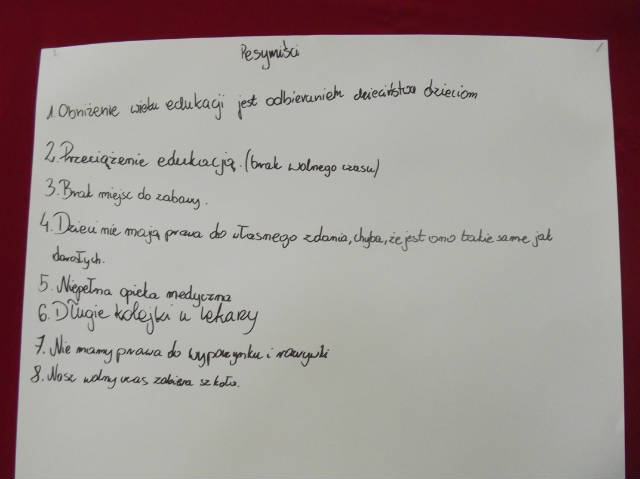 Pesymiści
1. Obniżenie wieku edukacji jest odbieraniem dzieciństwa dzieciom
2. Przeciążenie edukacją. (brak wolnego czasu)
3. Brak miejsc do zabawy.
4. Dzieci nie mają prawa do własnego zdania, chyba, że jest ono takie same jak
dorosłych.
5. Niepełna opieka medyczna
6. Długie kolejki u lekarzy
7. Nie mamy prawa do wypoczynku i rozrywki
8. Nasz wolny czas zabiera szkoła.